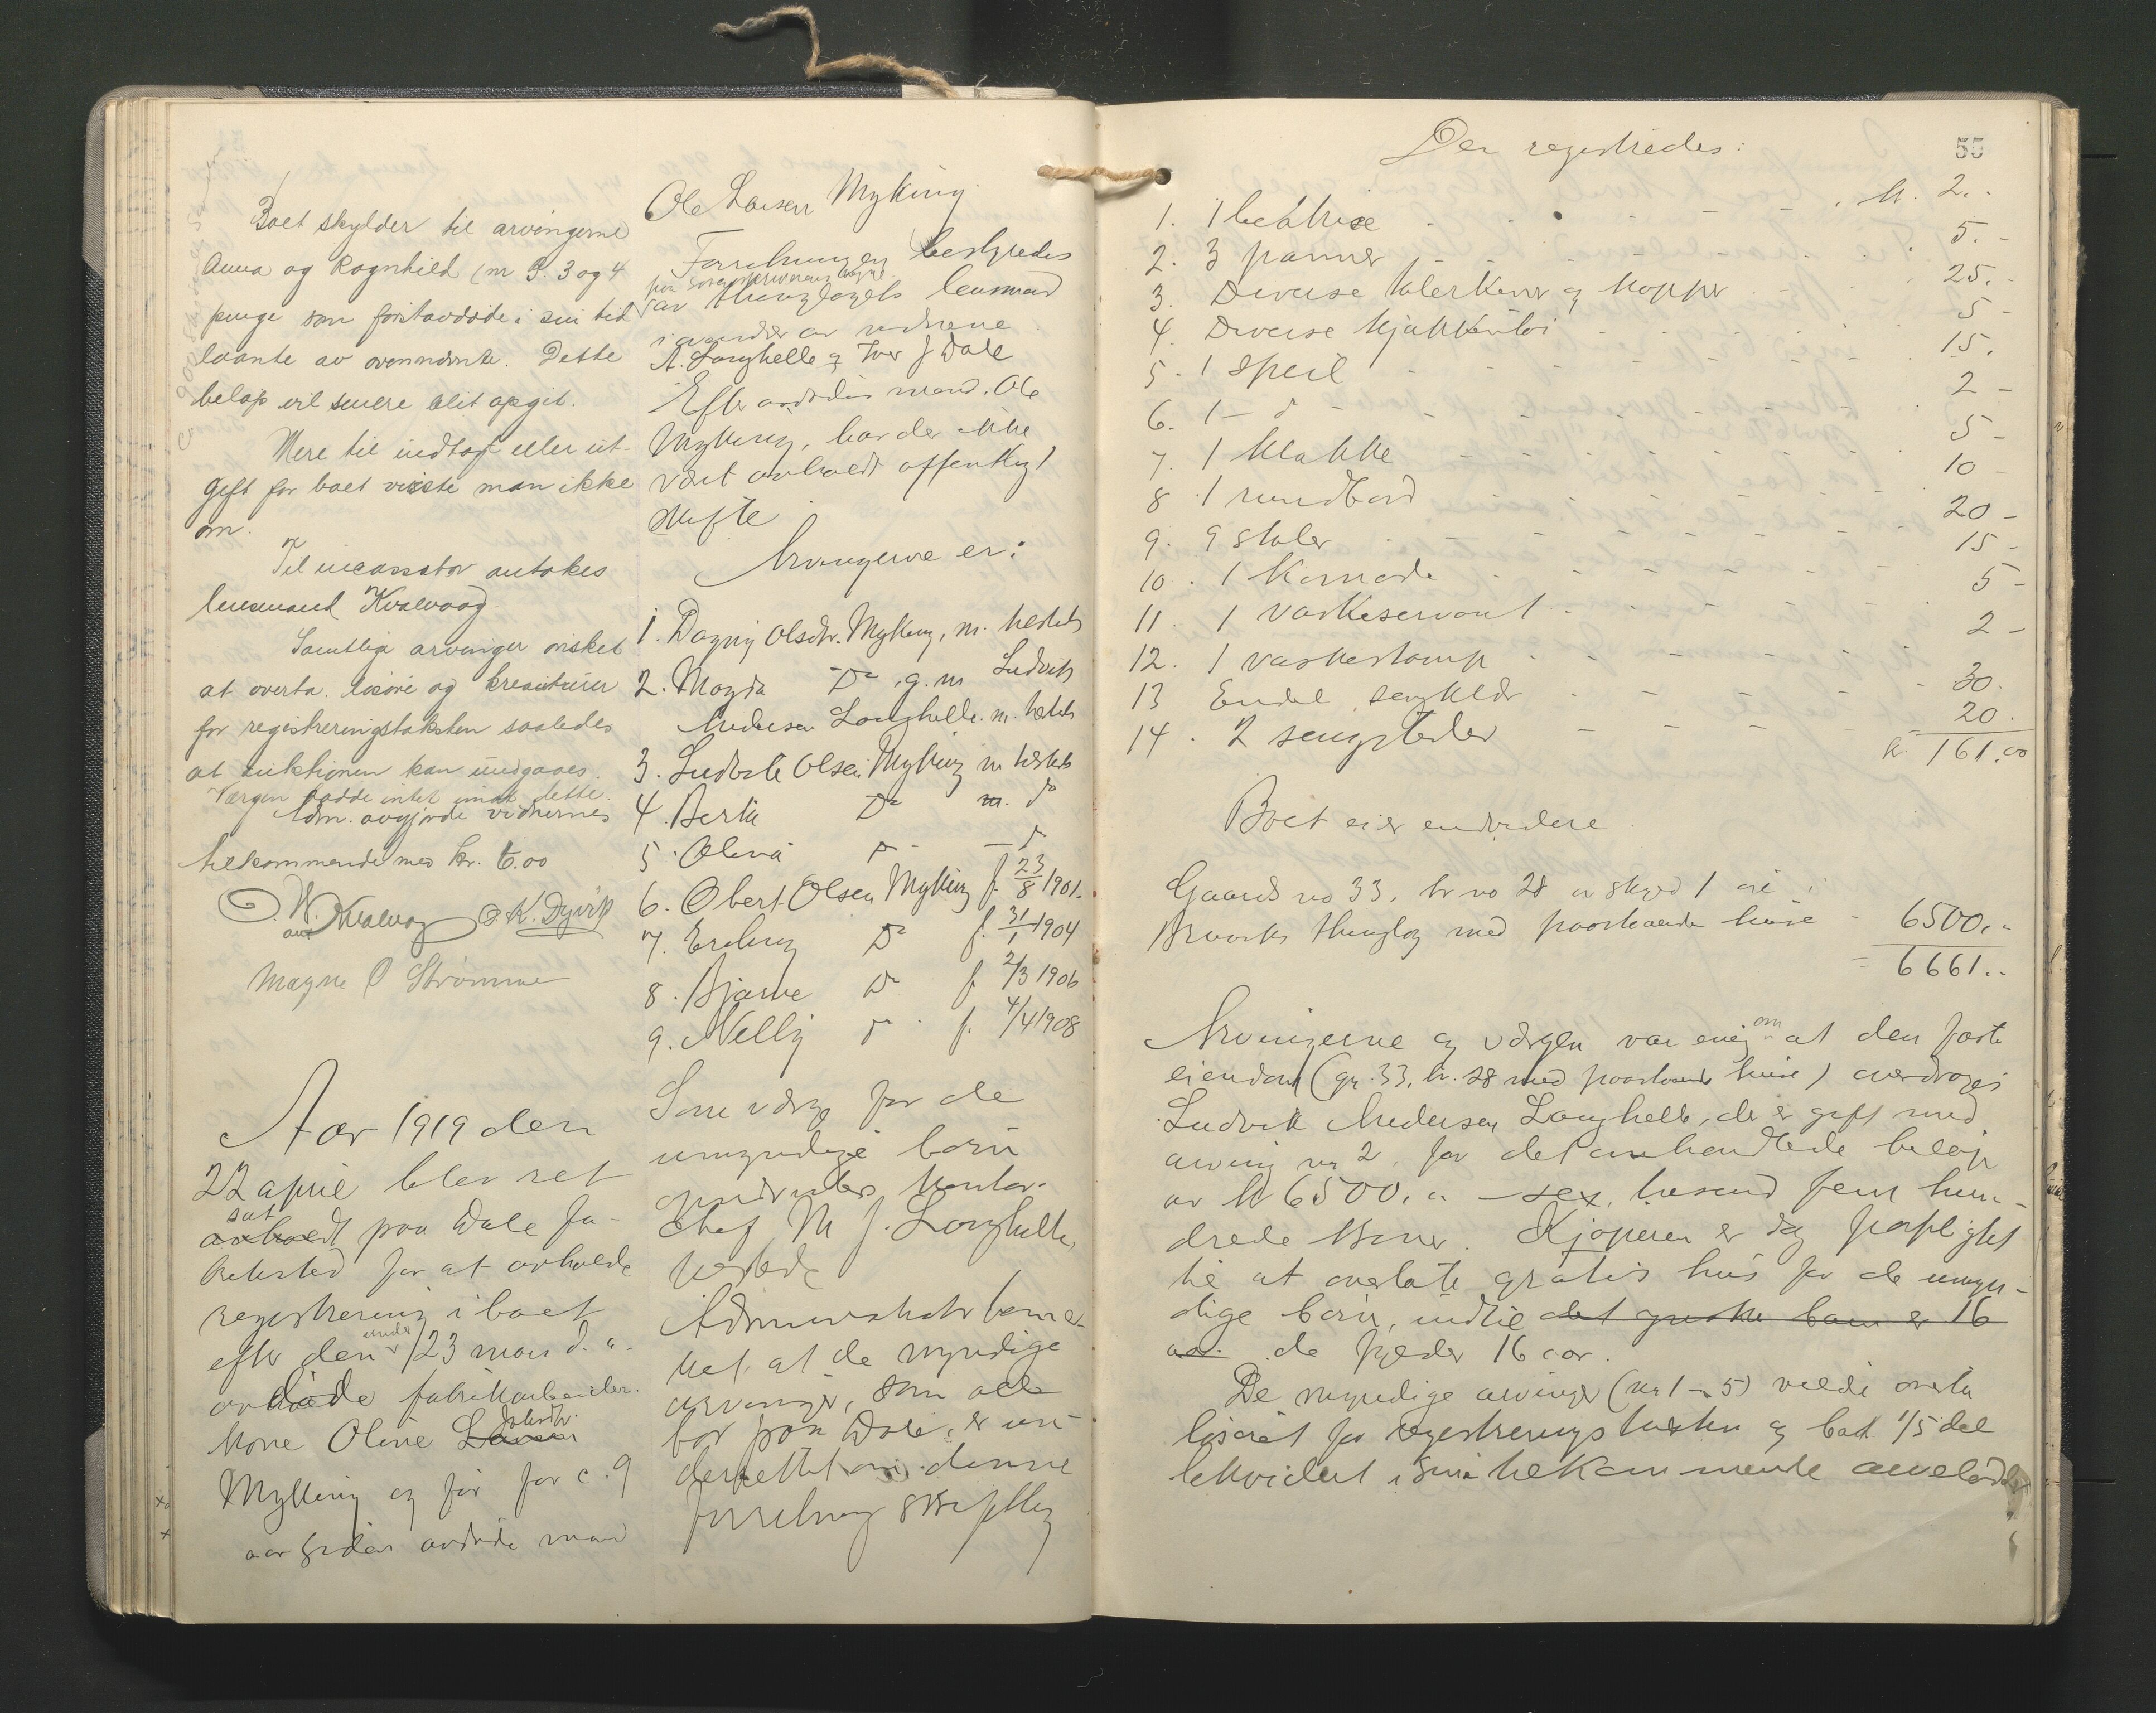 Boet skylder til arvingerne
Anna og Ragnhild (nr 3 og 4
penge som førstavdøde i sin tid
laante av ovennævnte. Dette
beløp vil senere blit opgit.
Mere til indtægt eller ut-
gift for boet visste man ikke
om.
Til incassator antokes
lensmand Kvalvaag
Samtlige arvinger ønsket
at overta løsøre og kreaturer
for registreringstaksten saaledes
at auktionen kan undgaaes.
Værgen hadde intet imot dette.
Adm. avgjorde vidnernes
tilkommende med kr. 6.00
O. W. Kvalvaag O. K. Dyvik
Magne O Strømme
Aar 1919 den
22 april blev ret
sat
avholdt paa Dale fa-
briksted for at avholde
registrering i boet
efter den under 23 mars d. a.
avdøde fabrikarbeider-
kone Oline Larsen
Mykking og for c. 9
aar siden avdøde mand
Ole Larsen Myking
Forretningen bestyredes
paa sorenskriverens vegne
av Hauglagets lensmand
i overvær av vidnene
A. Langhelle og Iver J Dale
Efter avdødes mand, Ole
Myking, har der ikke
vært avholdt offentligt
skifte
Arvingerne er:
1. Dagny Olsdtr. Myking, m. herstеds
2. Magda Do g. m Ludvik
Andersen Langhelle m. herstеds
3. Ludvik Olsen Myking m herstеds
4. Berta Do m. do
5. Olena do - do
6. Obert Olsen Myking f. 23/8 1901.
7. Erling Do f. 31/1 1904
8. Bjarne Do f. 2/3 1906
9. Nelly do f. 4/4 1908
Som værge for de
umyndige børn
opnævntes kontor-
chef M J. Langhelle,
herstеds
Administrator bemer-
ket at de myndige
arvinger, som alle
bor paa Dale, er un-
derrettet om denne
forretning skriftlig
55
Der registredes:
1. 1 kr. 2.-
2. 3 panner 5.-
3. Diverse tallerkener og kopper 25.-
4. Diverse kjøkkentøi 5-
5. 1 speil 15.
6. 1 - do 2-
7. 1 klokke 5-
8. 1 rundbord 10-
9. 9 stoler 20-
10. 1 komode 15-
11. 1 vaskeservant 5-
12. 1 vaskestamp 2-
13 Endel sengklær 30.
14. 2 sengsteder 20.
kr. 161.00
Boet eier endvidere
Gaards no 33, br no 28 av skyld 1 øre i
Bruviks thinglag med paastaaende huse - 6500.-
- 6661.-
Arvingerne og værgen var enig om at den faste
eiendom (gr. 33, br. 28 med paastaaende huse) overdrages
Ludvik Andersen Langhelle, der er gift med
arving nr 2, for det omhandlede beløp
av kr 6500.- - sex tusend fem hun-
drede kroner. Kjøperen er dog forpligtet
til at overlate gratis hus for de umyn-
dige børn, indtil det yngste barn er 16
aar de fylder 16 aar.
De myndige arvinger (nr 1-5) vilde overta
løsøret for registreringstaksten og bad 1/5 del
likvidert i sine tilkommende arvelodder